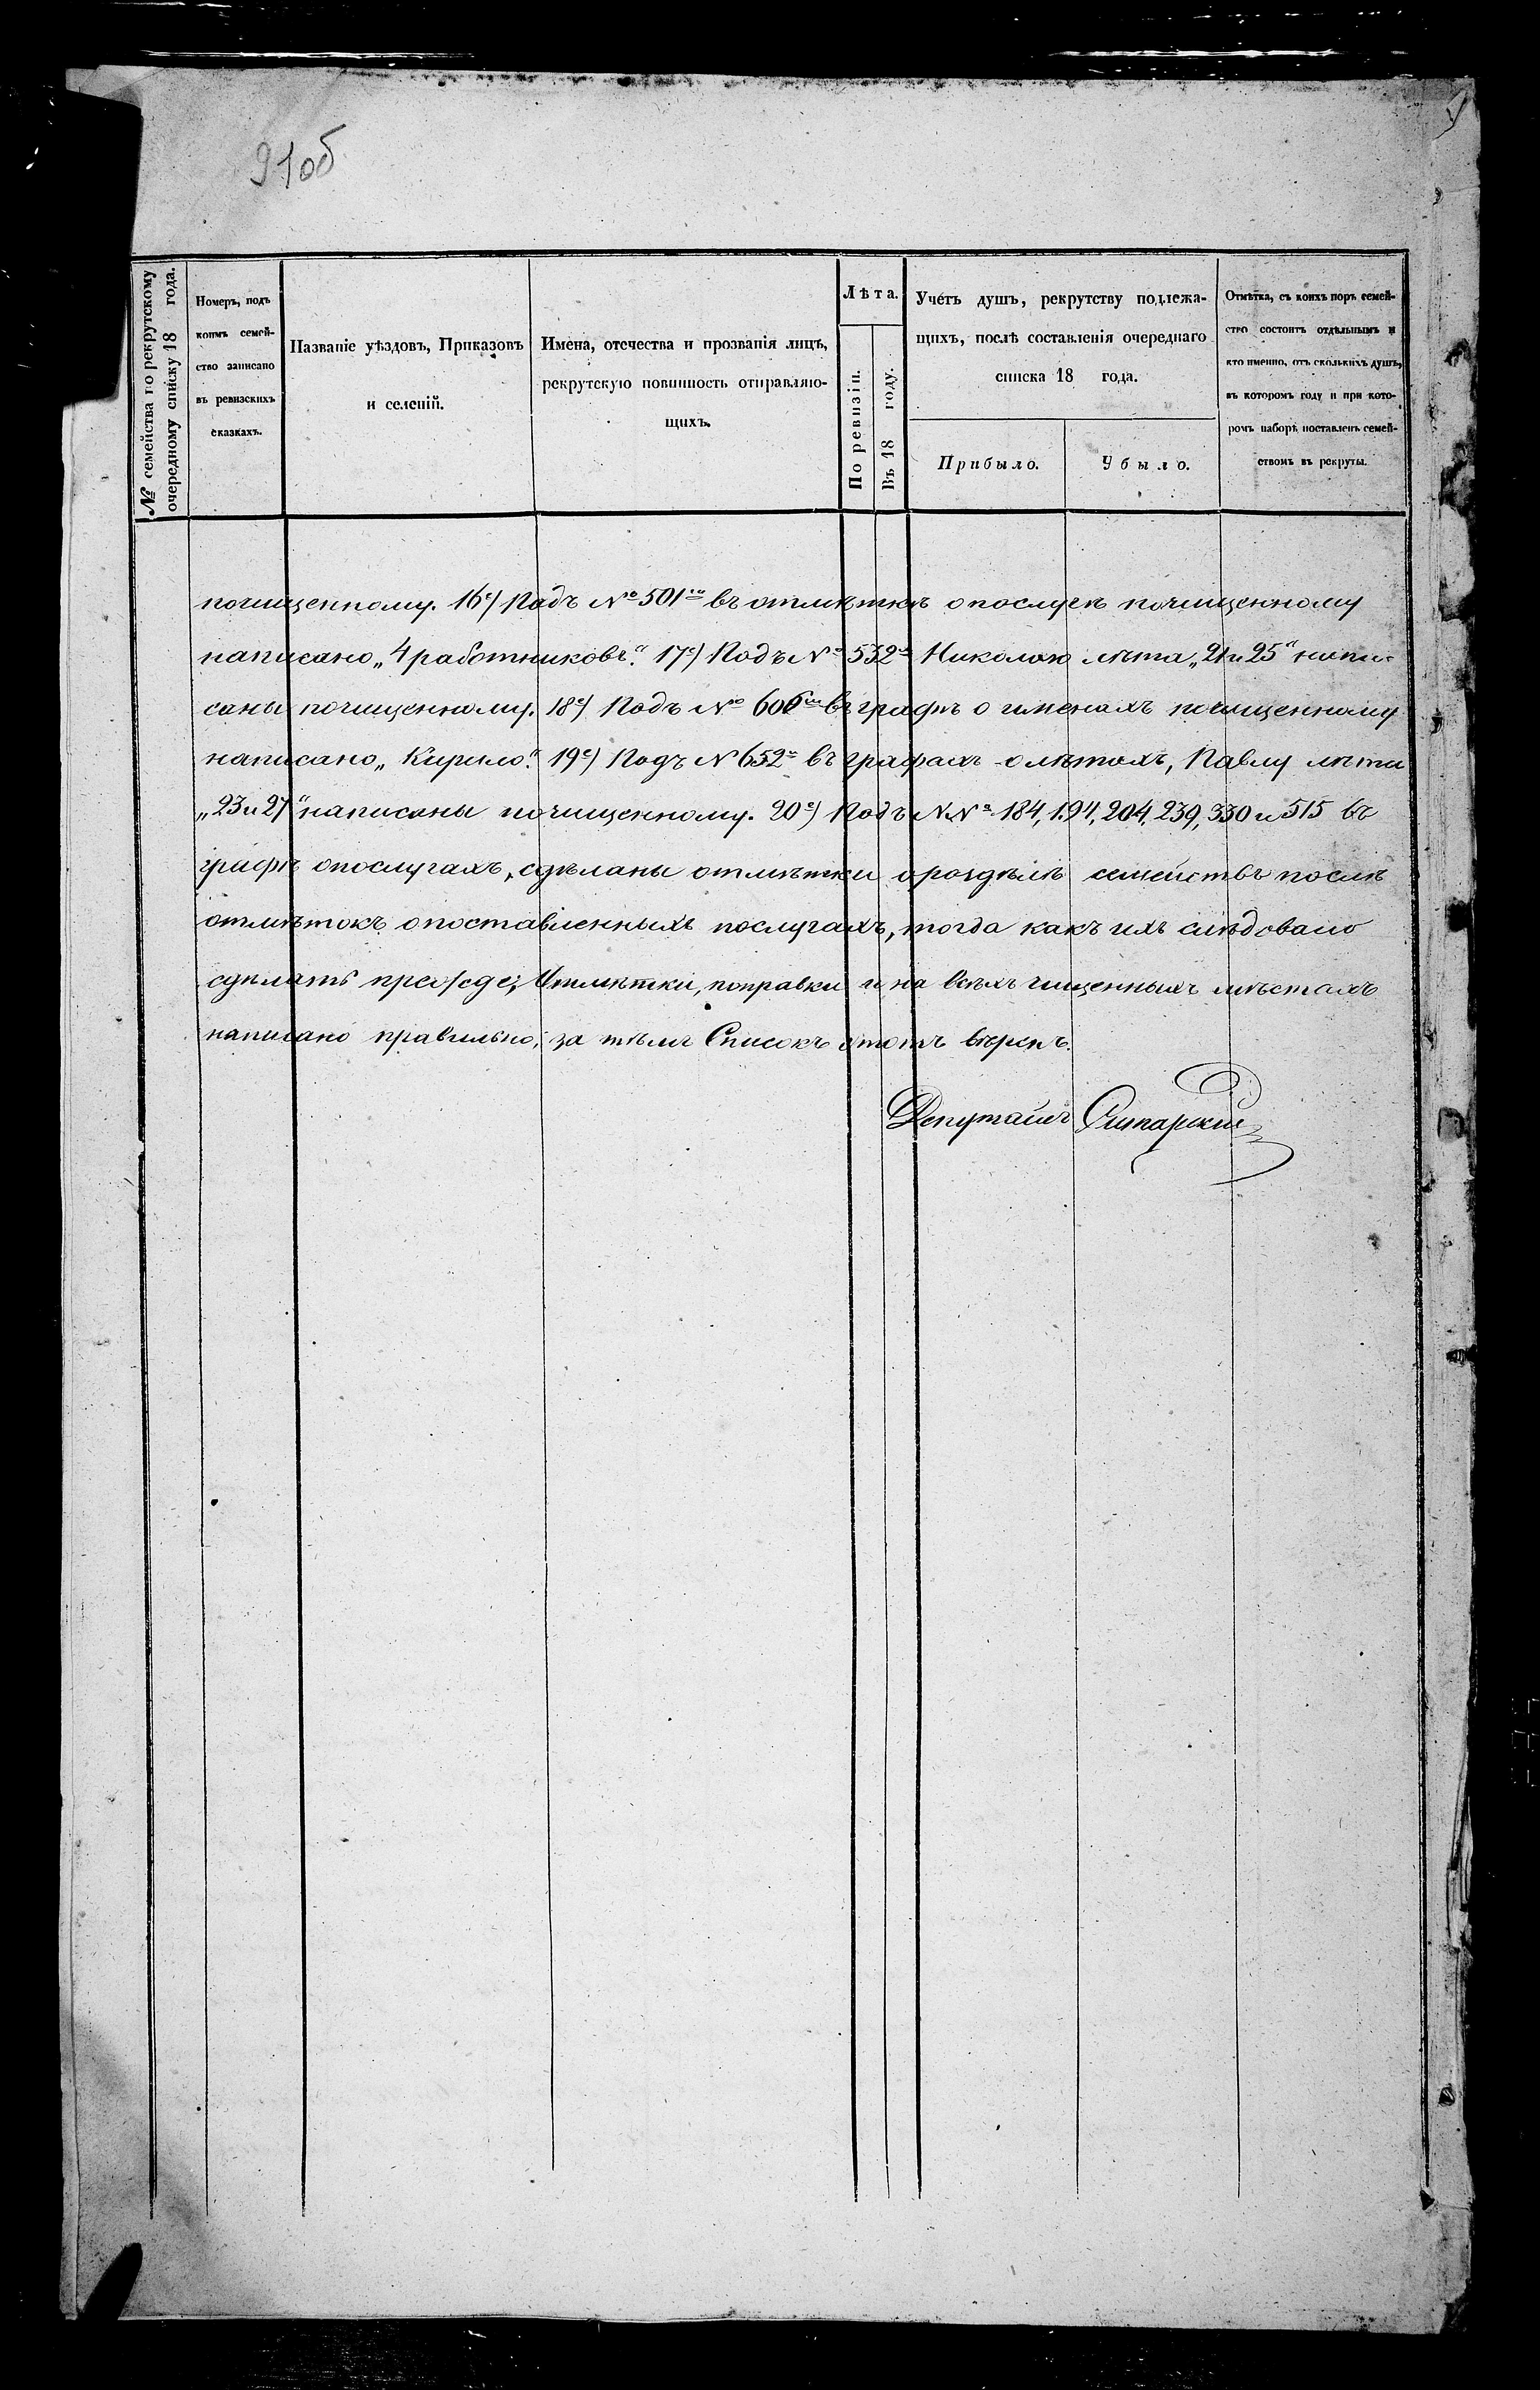 91об
№ семейства по рекрутскому
очередному списку 18 года.
Номеръ, подъ
коимъ семей-
ство записано
въ ревизскихъ
сказкахъ.
Названіе уѣздовъ, Приказовъ
и селеній.
Имена, отечества и прозванія лицъ,
рекрутскую повинность отправляю-
щихъ.
Лѣта.
По ревизіи.
Въ 18 году.
Учетъ душъ, рекрутству подлежа-
щихъ, послѣ составленія очереднаго
списка 18 года.
Прибыло.
Убыло.
Отмѣтка, съ коихъ поръ семей-
ство состоитъ отдѣльнымъ и
кто именно, отъ сколькихъ душъ,
въ которомъ году и при кото-
ромъ наборѣ поставленъ семей-
ствомъ въ рекруты.
почищенному. 16е) Подъ № 501мъ въ отмѣткѣ о послугѣ почищенному
написано „4 работниковъ“. 17е) Подъ № 532м Николаю лѣта „21 и 25“ напи-
саны почищенному. 18е) Подъ № 606мъ въ графѣ о именахъ почищенному
написано „Кирило“. 19е) Подъ № 652м въ графахъ о лѣтахъ, Павлу лѣта
„23 и 27“ написаны почищенному. 20е) Подъ №№ 184, 194, 204, 239, 330 и 515 въ
графѣ о послугахъ, сдѣланы отмѣтки о роздѣлѣ семействъ послѣ
отмѣтокъ о поставленныхъ послугахъ, тогда какъ ихъ слѣдовало
сдѣлать прежде; Отмѣтки, поправки и на всѣхъ чищенныхъ мѣстахъ
написано правильно; за тѣмъ Списокъ этотъ вѣренъ.
Депутатъ